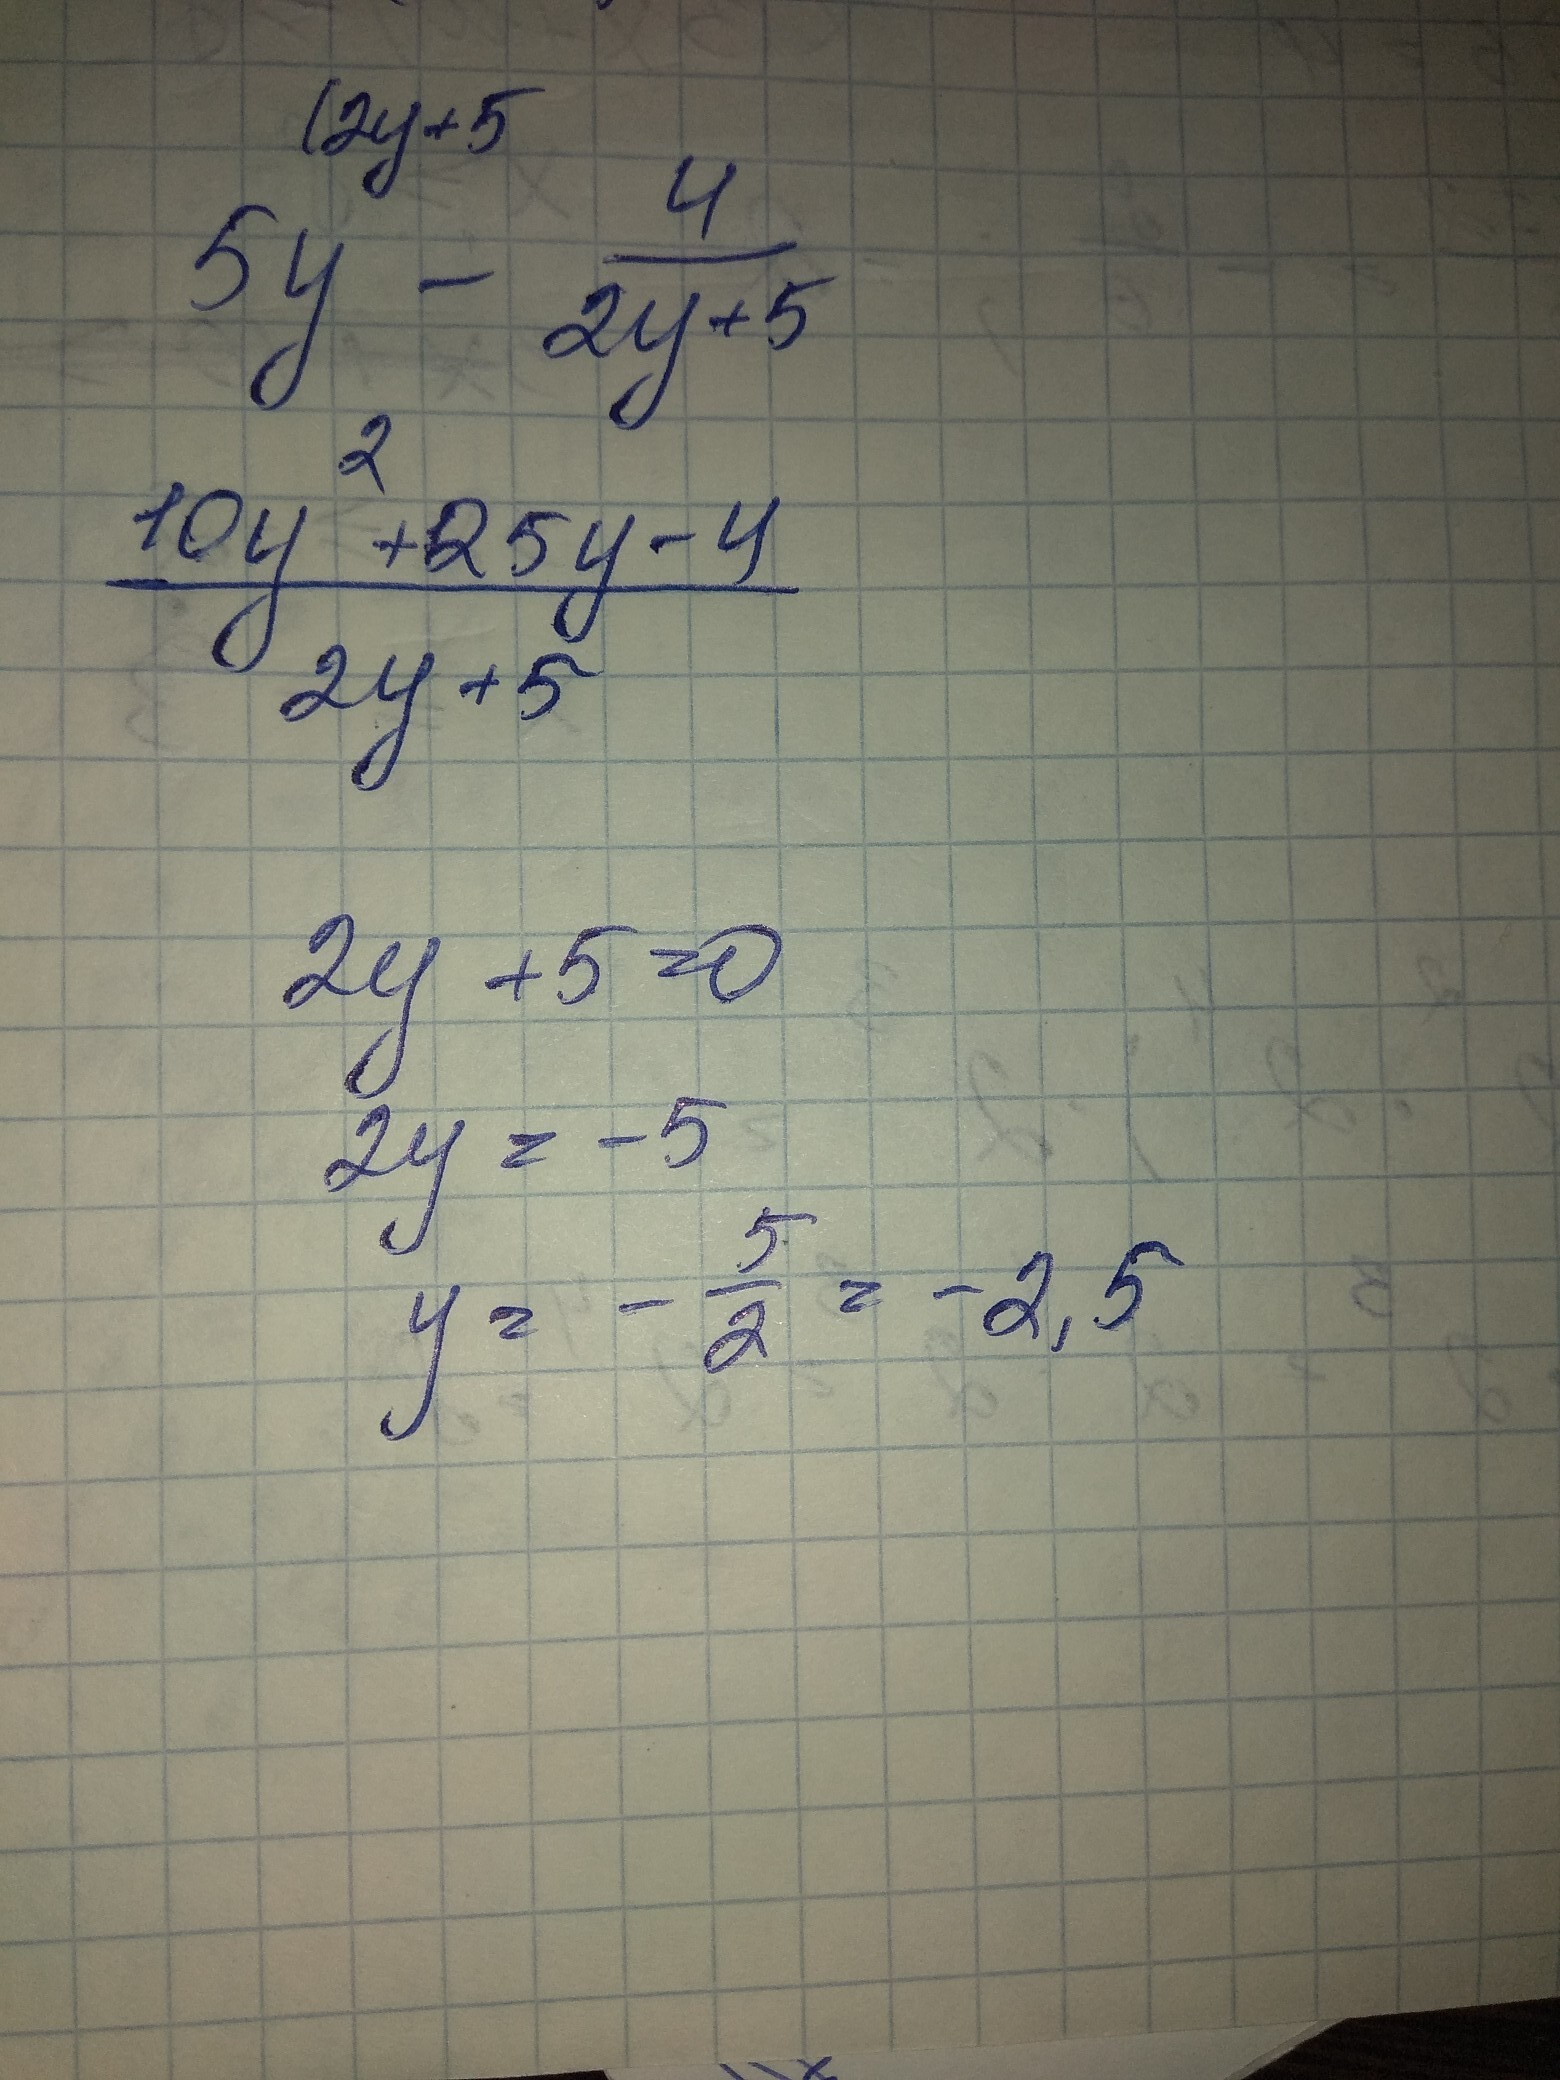 (2y+5
5y - 4/(2y+5)
10y² +25y-4
2y+5
2y +5=0
2y = -5
y = - 5/2 = -2,5